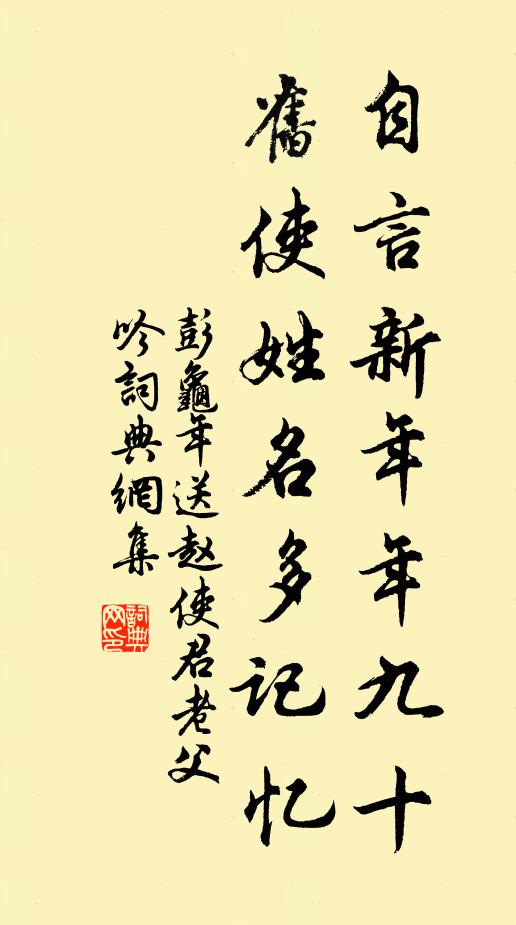 自言新年年九十
舊使姓名多记忆
彭龜年送赵使君老父
吟詞典網集
詞典网印